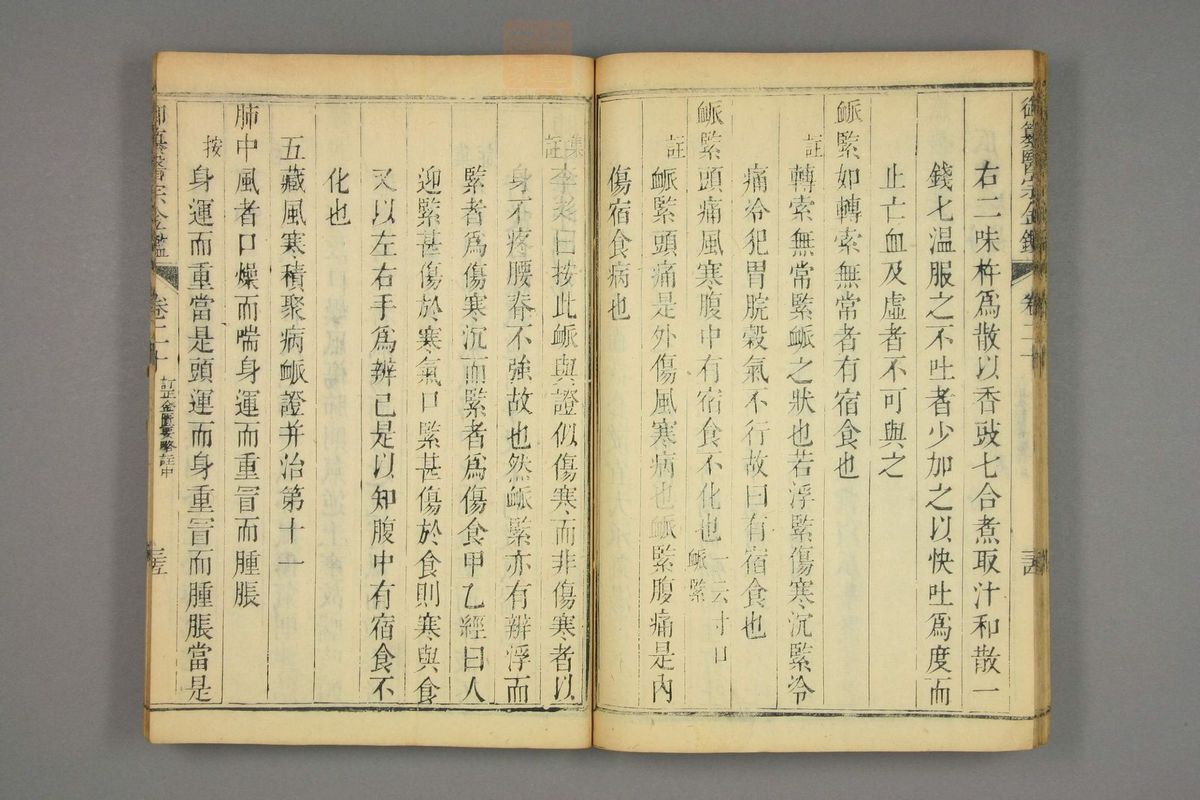 御纂醫宗金鑑 卷二十 三五
右二味杵爲散以香豉七合煮取汁和散一
錢匕温服之不吐者少加之以快吐爲度而
止亡血及虛者不可與之
脈緊如轉索無常者有宿食也
註轉索無常緊脈之狀也若浮緊傷寒沉緊冷
痛冷犯胃脘穀氣不行故曰有宿食也
脈緊頭痛風寒腹中有宿食不化也一云寸口脈緊
註脈緊頭痛是外傷風寒病也脈緊腹痛是內
傷宿食病也
集註李彣曰按此脈與證似傷寒而非傷寒者以
身不疼腰脊不強故也然脈緊亦有辨浮而
緊者爲傷寒沉而緊者爲傷食甲乙經曰人
迎緊甚傷於寒氣口緊甚傷於食則寒與食
又以左右手爲辨已是以知腹中有宿食不
化也
五藏風寒積聚病脈證并治第十一
肺中風者口燥而喘身運而重冒而腫脹
按身運而重當是頭運而身重冒而腫脹當是
御纂醫宗金鑑 卷二十 訂正金匱要略註中 三五